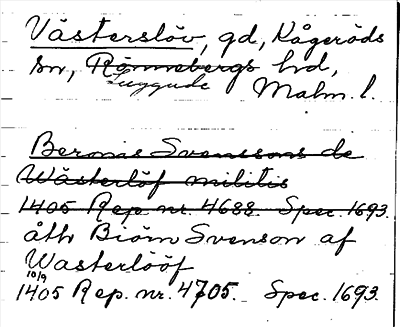 Västerslöv, gd, Kågeröds
sn, Rönnebergs hd,
Luggude Malm. l.
Beronis Svenssons de
Wästerlöf militis
1405 Rep. nr. 4688. Spec. 1693.
åth Biörn Svenson af
Wasterlööf
10/9
1405 Rep. nr. 4705. Spec. 1693.